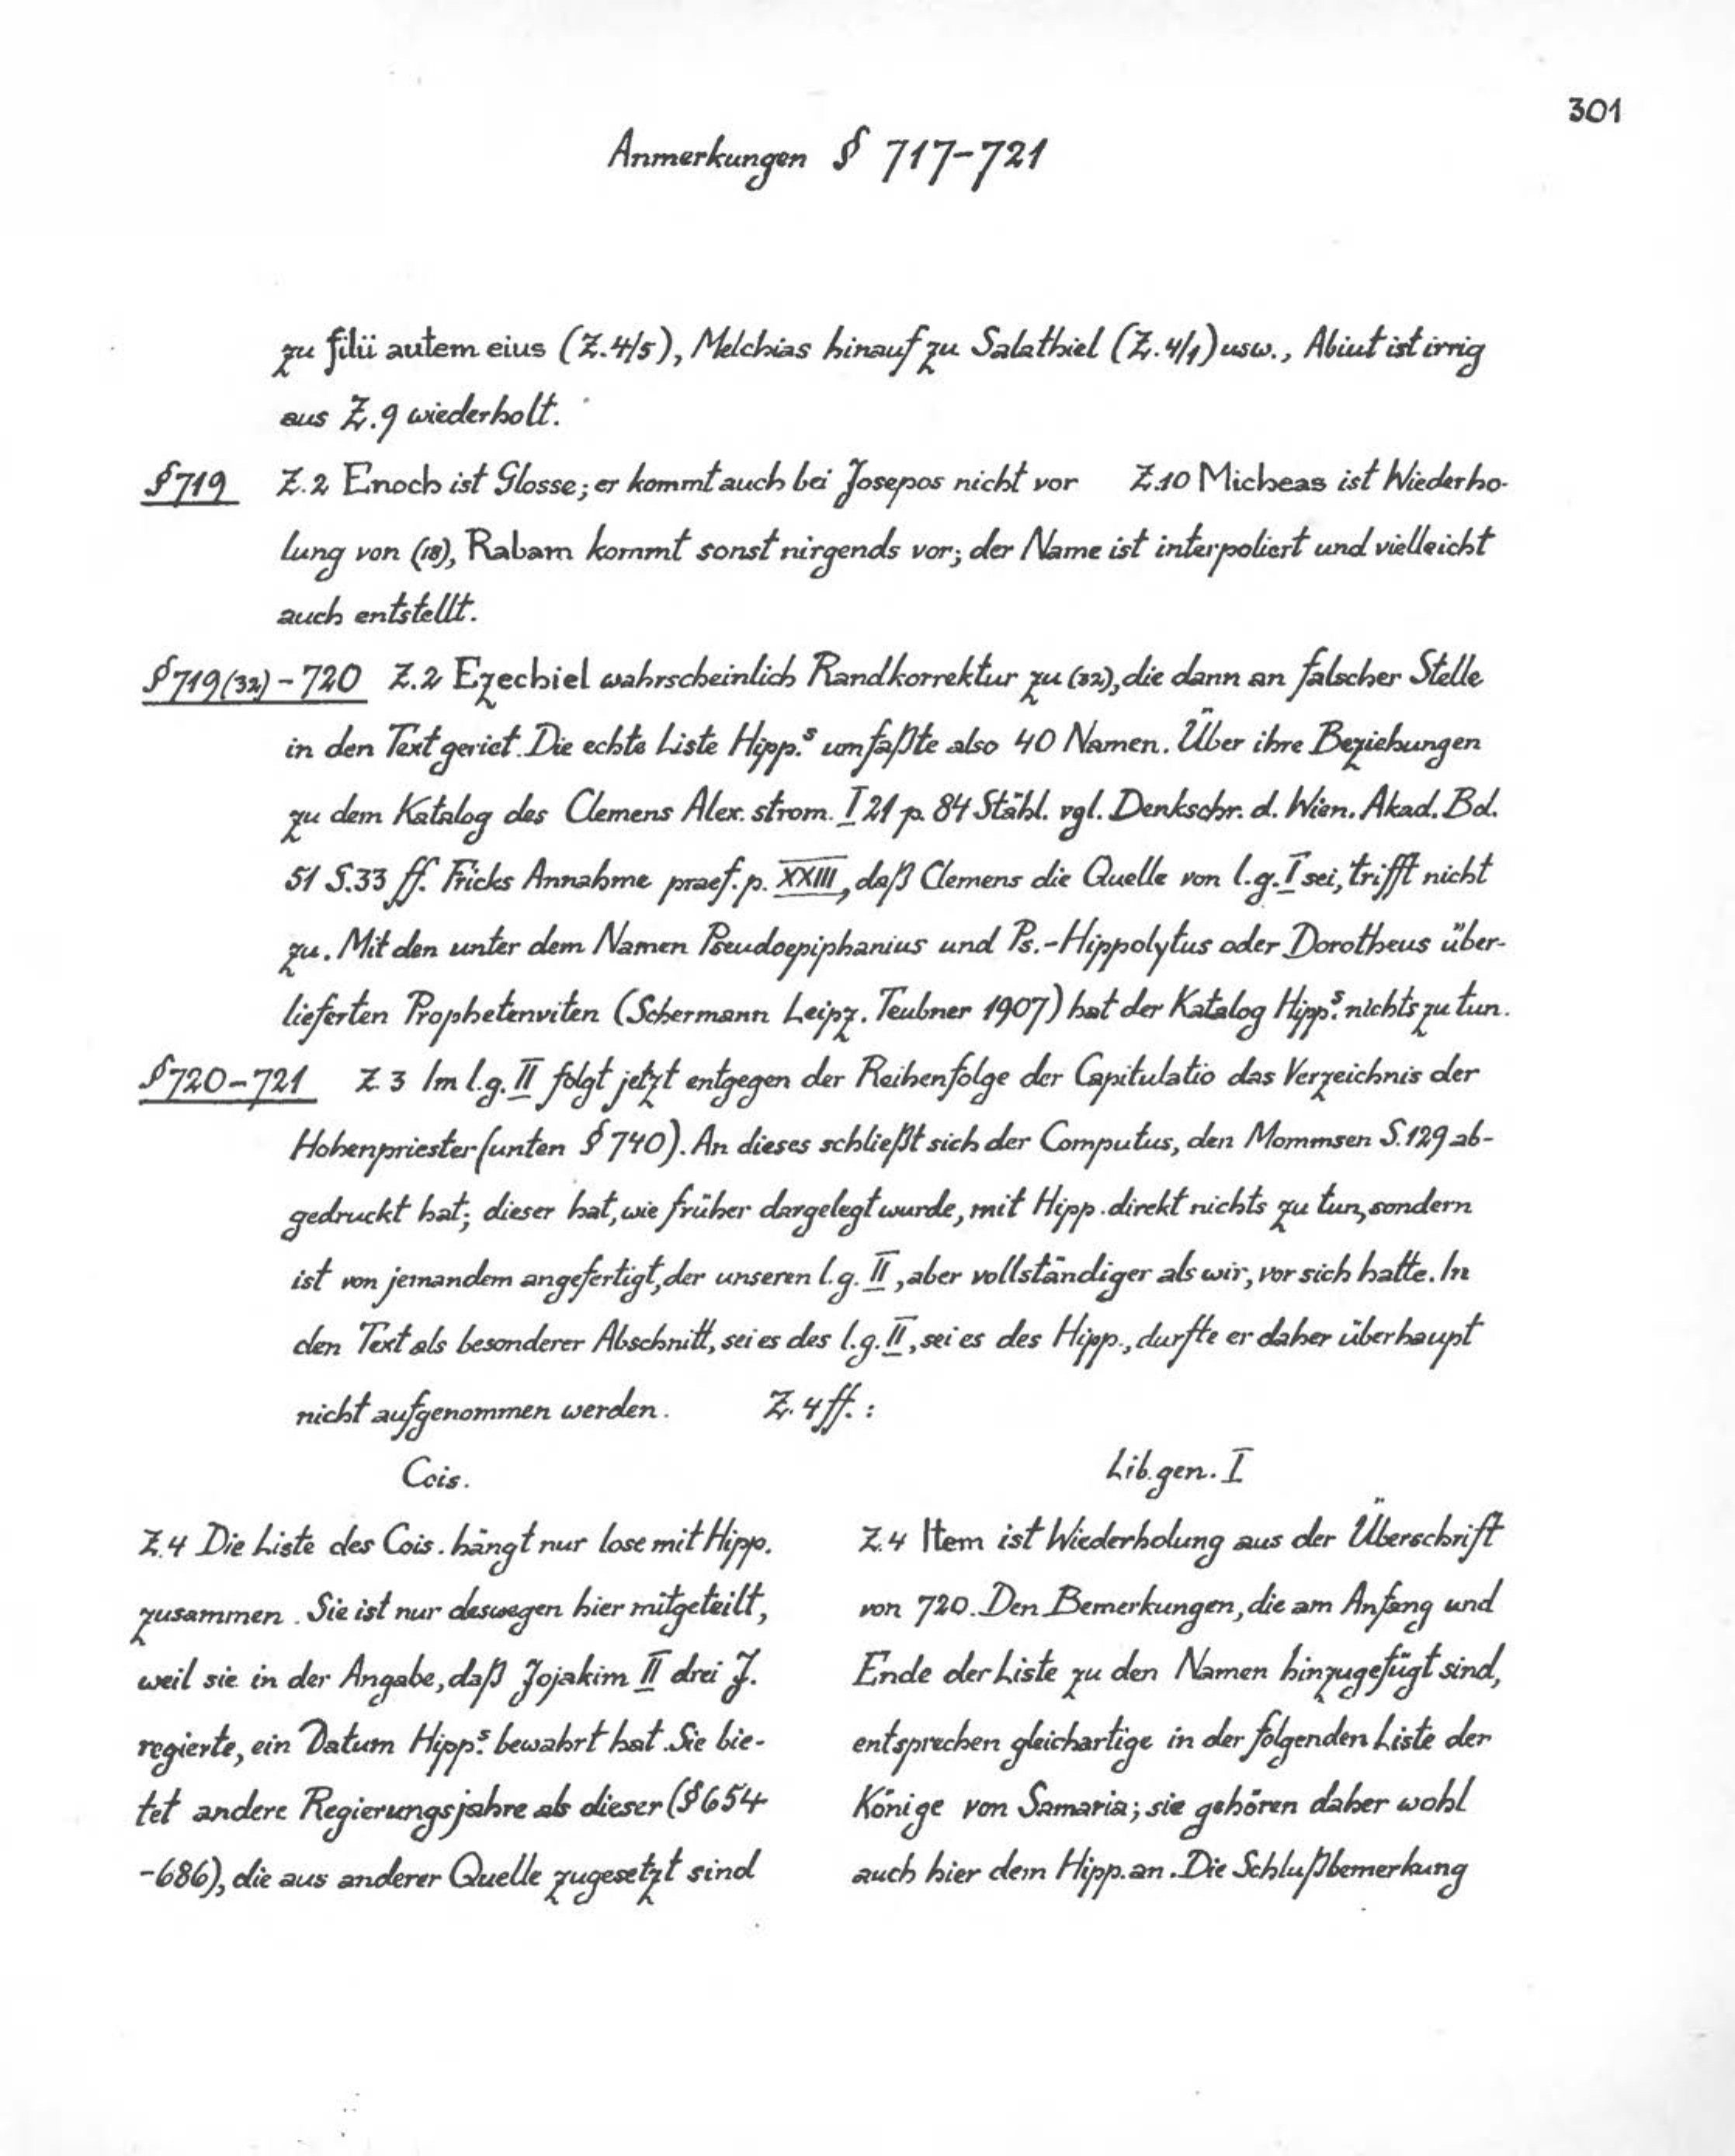 301
Anmerkungen § 717-721
zu filii autem eius (Z.4/5), Melchias hinauf zu Salathiel (Z.4/1) usw., Abiut ist irrig
aus Z.9 wiederholt.
§719 Z.2 Enoch ist Glosse; er kommt auch bei Josepos nicht vor Z.10 Micheas ist Wiederho-
lung von (18), Rabam kommt sonst nirgends vor; der Name ist interpoliert und vielleicht
auch entstellt.
§719(32)-720 Z.2 Ezechiel wahrscheinlich Randkorrektur zu (32), die dann an falscher Stelle
in den Text geriet. Die echte Liste Hipp.s umfaßte also 40 Namen. Über ihre Beziehungen
zu dem Katalog des Clemens Alex. strom. I 21 p. 84 Stähl. vgl. Denkschr. d. Wien. Akad. Bd.
51 S.33 ff. Fricks Annahme praef. p. XXIII, daß Clemens die Quelle von l.g. I sei, trifft nicht
zu. Mit den unter dem Namen Pseudoepiphanius und Ps.-Hippolytus oder Dorotheus über-
lieferten Prophetenviten (Schermann Leipz. Teubner 1907) hat der Katalog Hipp.s nichts zu tun.
§720-721 Z.3 Im l.g. II folgt jetzt entgegen der Reihenfolge der Capitulatio das Verzeichnis der
Hohenpriester (unten § 740). An dieses schließt sich der Computus, den Mommsen S.129 ab-
gedruckt hat; dieser hat, wie früher dargelegt wurde, mit Hipp. direkt nichts zu tun, sondern
ist von jemandem angefertigt, der unseren l.g. II, aber vollständiger als wir, vor sich hatte. In
den Text als besonderer Abschnitt, sei es des l.g. II, sei es des Hipp., durfte er daher überhaupt
nicht aufgenommen werden. Z. 4 ff. :
Cois.
Z.4 Die Liste des Cois. hängt nur lose mit Hipp.
zusammen. Sie ist nur deswegen hier mitgeteilt,
weil sie in der Angabe, daß Jojakim II drei J.
regierte, ein Datum Hipp.s bewahrt hat. Sie bie-
tet andere Regierungsjahre als dieser (§654
-686), die aus anderer Quelle zugesetzt sind
Lib. gen. I
Z.4 Item ist Wiederholung aus der Überschrift
von 720. Den Bemerkungen, die am Anfang und
Ende der Liste zu den Namen hinzugefügt sind,
entsprechen gleichartige in der folgenden Liste der
Könige von Samaria; sie gehören daher wohl
auch hier dem Hipp. an. Die Schlußbemerkung